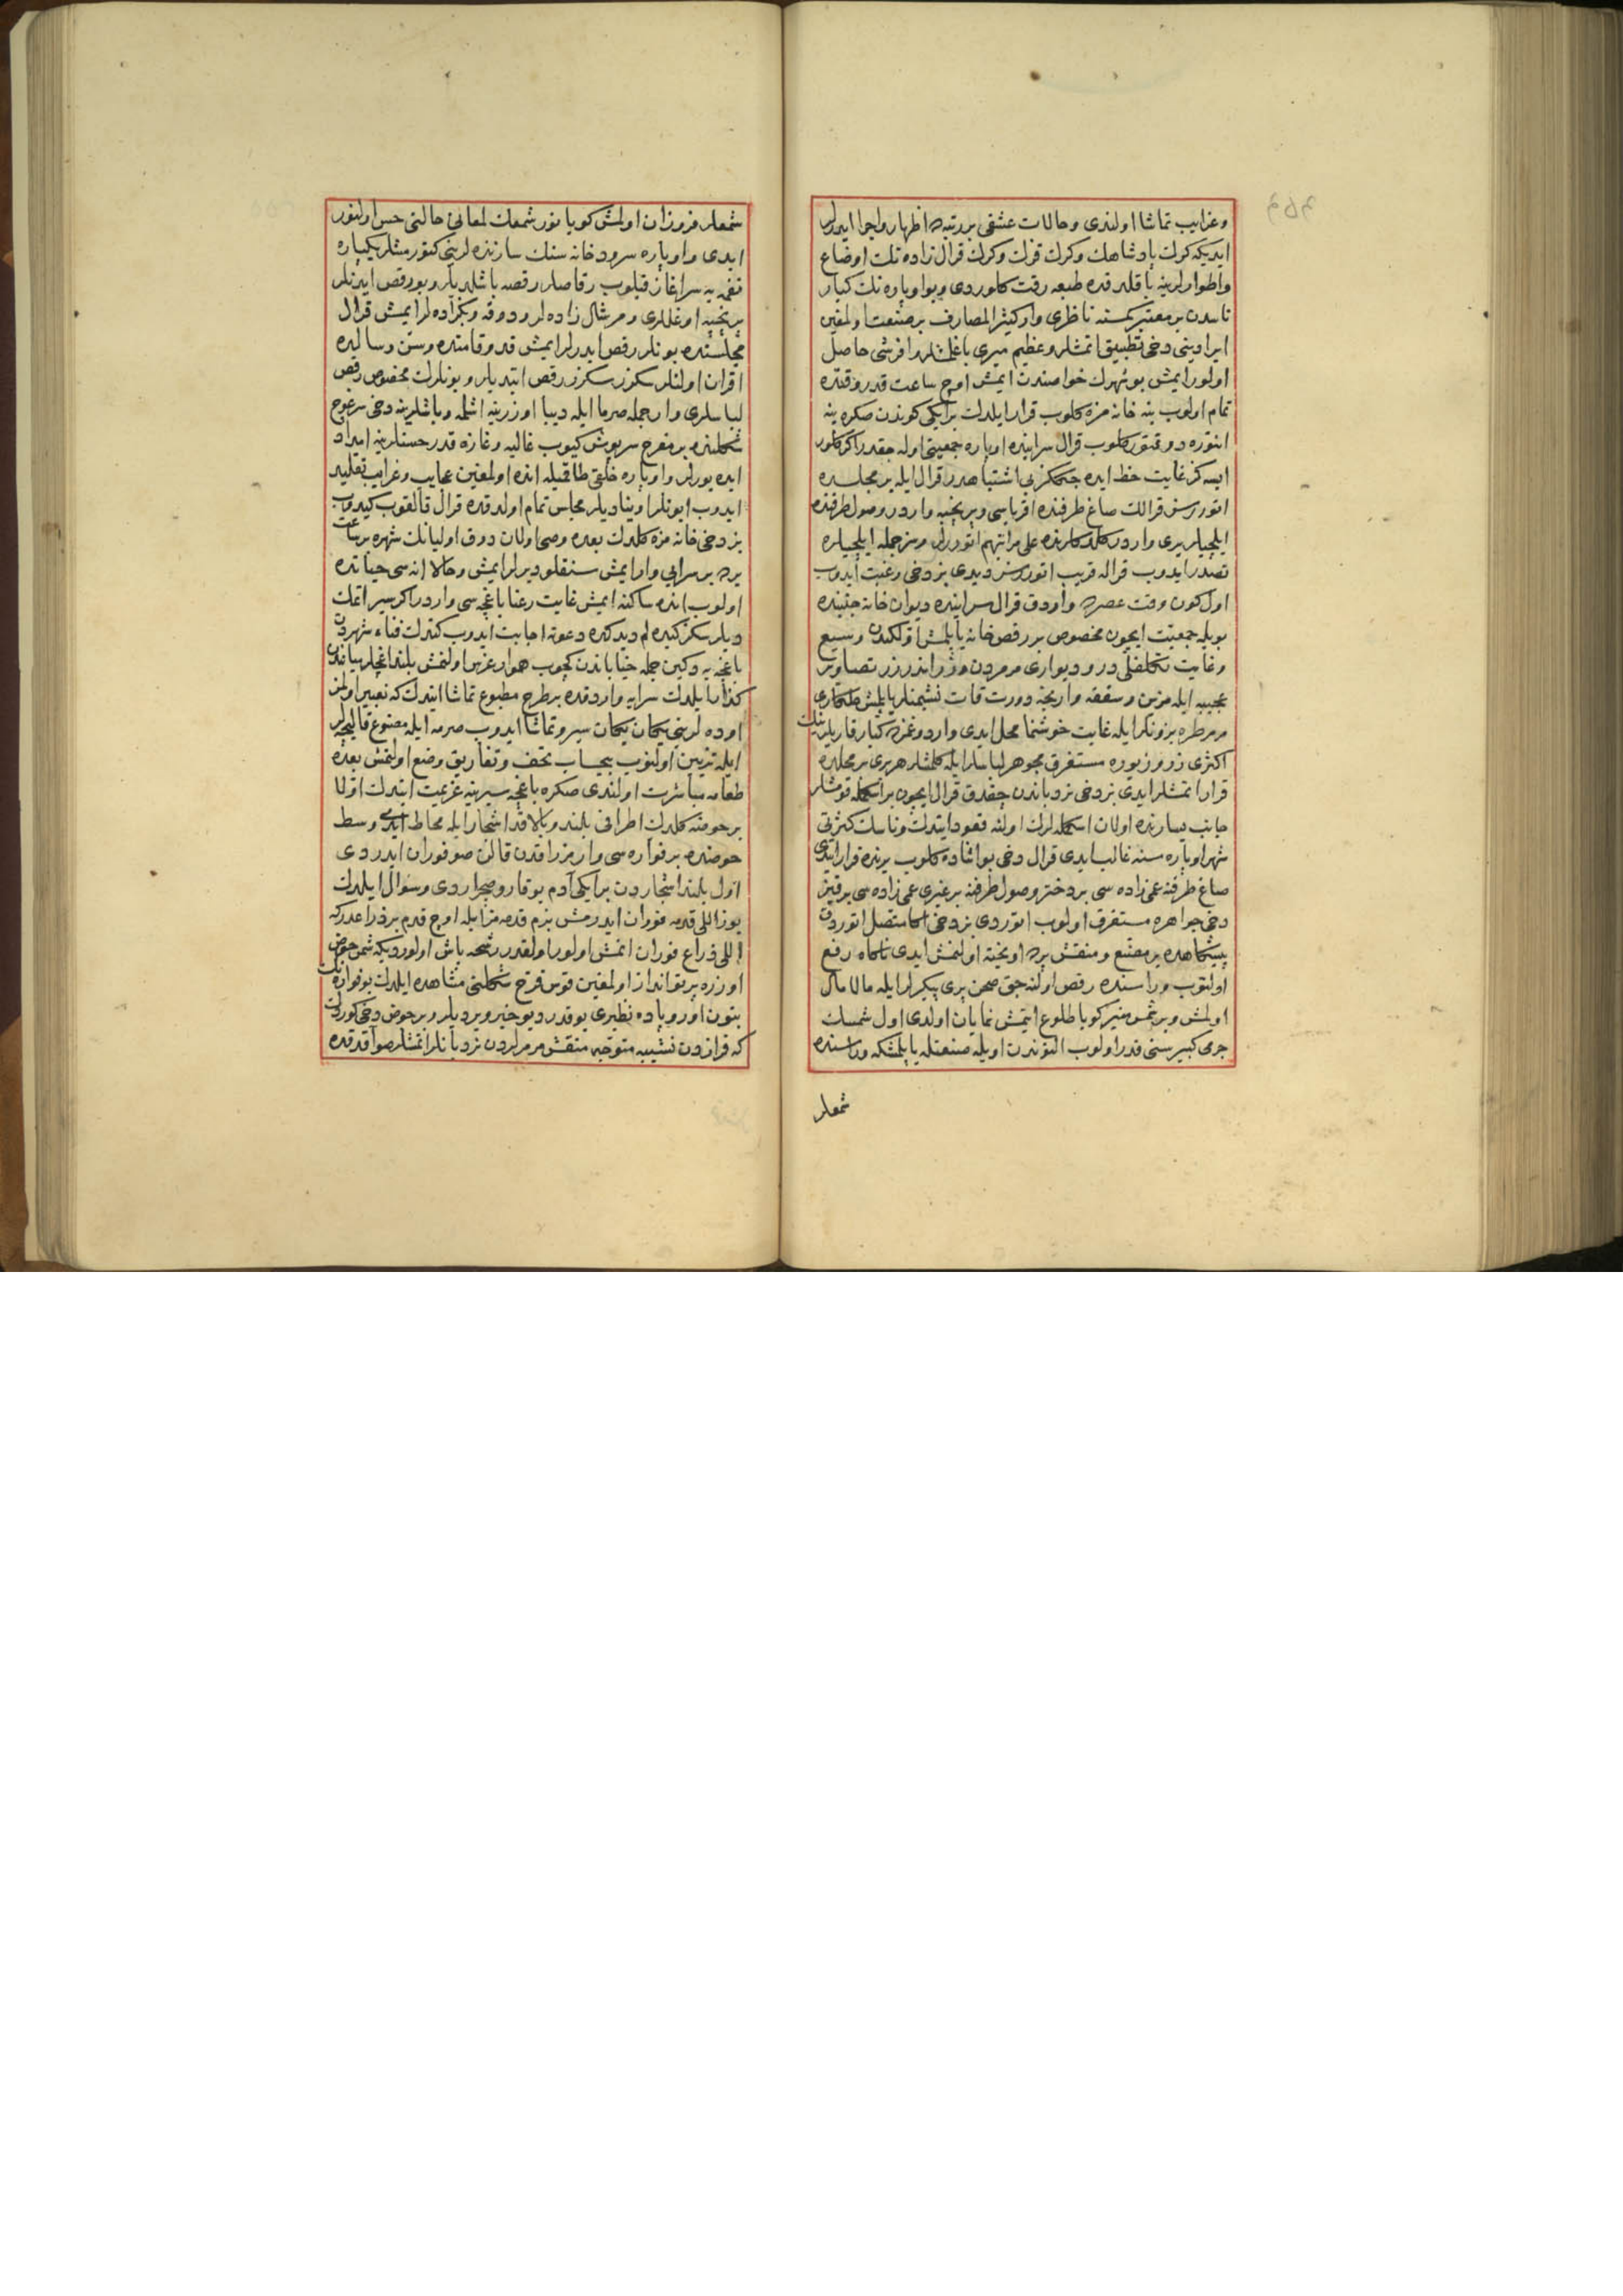 وغرایب تماشا اولندی وحالات عشقی بر رتبه اظهار واجرا ایدرلر
ایدیکه کرك پادشاهك وکرك قزك وکرك قرال زاده نك اوضاع
واطوارلرینه باقلدقده طبعه رقت کلوردی وبو اوپاره نك کبار
ناسدن بر معتبر کمسنه ناظری وار کثیر المصارف بر صنعت اولمغین
ایرادینی دخی تطبیق اتمشلر وعظیم میری باغلمشلر وافر شی حاصل
اولور ایمش بو شهرك خواصندن ایمش اوچ ساعت قدر وقتده
تمام اولوب ینه خانه مزه کلوب قرار ایلدك بر ایکی کوندن صکره ینه
انتوره دوقتور کلوب قرال سراینده اوپاره جمعیتی اوله جقدر اکر کلور
ایسه کز غایت حظ ایده جککز بی اشتباهدر قرال ایله بر مجلسده
اتوررسز قرالك صاغ طرفنده اقرباسی وپرنچپه وار در وصول طرفنده
ایلچیلر یری واردر کلدکلرنده علی مراتبهم اتوررلر وسز جمله ایلچیلره
تصدر ایدوب قراله قریب اتوررسز دیدی بز دخی رغبت ایدوب
اول کون وقت عصرده واردق قرال سراینده دیوان خانه جنبنده
بویله جمعیت ایچون مخصوص بر رقص خانه یاپلمش اولکیدن وسیع
وغایت تکلفلی در ودیواری مرمردن وزر اندر زر تصاویر
عجیبه ایله مزین وسقفه وارنجه دورت قات نشیمنلر یاپلمش طلکاری
مرمر طره بزونلر ایله غایت خوشنما محل ایدی وارد وغمزده کبار قاریلرینك
اکثری زر وزیوره مستغرق مجوهر لباسلر ایله کلمشلر هر بری بر محلده
قرار اتمشلر ایدی بز دخی نردباندن چقدق قرال ایچون بر اسکمله قومشلر
جانب یسارنده اولان اسکمله لرك اولنه قعود ایتدك وناسك کثرتی
شهر اوپاره سنه غالب ایدی قرال دخی بو اثناده کلوب یرنده قرار ایتدی
صاغ طرفنه عمی زاده سی بر دختر وصول طرفنه بر غیری عمی زاده سی بر قیز
دخی جواهره مستغرق اولوب اتوردی بز دخی اکا متصل اتوردق
پیشکاهده بر مصنع ومنقش پرده آویخته اولنمش ایدی ناکاه رفع
اولنوب وراسنده رقص اولنه جق صحن پری پیکرلر ایله مالامال
اولمش وبر شمس منیر کویا طلوع ایتمش نمایان اولدی اول شمسك
جرمی کبیر سنی قدر اولوب التوندن اویله صنعتله یاپلمشکه وراسنده
شمعلر
شمعلر فروزان اولمش کویا نور شمعك لمعانی حالتی حس اولنور
ایدی واوپاره سرود خانه سنك سازنده لرینی کتورمشلر یکپاره
نغمه یه سر آغاز قیلوب رقاصلر رقصه باشلدیلر وبو رقص ایدنلر
پرنچپه اوغللری ومرشال زاده لر ودوقه وبکزاده لر ایمش قرال
مجلسنده بونلر رقص ایدرلر ایمش قد وقامتده وسن وسالده
اقران اولنلر سکزر سکزر رقص ایتدیلر وبونلرك مخصوص رقص
لباسلری وار جمله صرما ایله دیبا اوزرینه اشلمه وباشلرینه دخی سرغوج
شکلنده بر مفرح سرپوش کیوب غالیه وغازه قدر حسنلرینه امداد
ایده یورلر واوپاره خلقی طاقمیله انده اولمغین عجایب وغرایب تقلید
ایدوب ایونلر اوینادیلر مجلس تمام اولدقده قرال قالقوب کیدوب
بز دخی خانه مزه کلدك بعده وصی اولان دوق اولیانك شهره بر ساعت
یرده بر سرایی وار ایمش سنقلو دیرلر ایمش وحالا انه سی حیاتده
اولوب انده ساکنه ایمش غایت رعنا باغچه سی واردر اکر سیر اتمك
دیلرسکز کیده لم دیدکده دعوته اجابت ایدوب کتدك فناء شهردن
باغچه یه دکین جمله خیاباندن کچوب هموار غرس اولنمش بلند اغاجلر میانندن
کذار ایلدك سرایه وارد قده بر طرح مطبوع تماشا ایتدك که تعبیر اولنمز
اوده لرینی یکان یکان سیر وتماشا ایدوب صرمه ایله مصنوع قالیچه لر
ایله تزیین اولنوب بیحساب تحف وتفاریق وضع اولنمش بعده
طعامه مباشرت اولندی صکره باغچه سیرینه عزیمت ایتدك اولا
بر حوضنه کلدك اطرافی بلند وبالا قد اشجار ایله محاط ایدی وسط
حوضنده بر فواره سی وار مزراقدن قالن صو فوران ایدردی
اول بلند اشجاردن بر ایکی آدم بوقارو صچراردی وسؤال ایلدك
یوز اللی قدمه فوران ایدرمش بزم قدممز ایله اوچ قدم بر ذراعدر که
اللی ذراع فوران اتمش اولور اولقدر رشحه پاش اولوردیکه شمس حوض
اوزره پرتو انداز اولمغین قوس قزح شکلنی مشاهده ایلدك بو فواره نك
بتون اوروپاده نظیری یوقدر دیو خبر ویردیلر وبر حوض دخی کوردك
که فرازدن نشیبه متوجه منقش مرمرلردن نردبانلر اتمشلر صو آقدقده